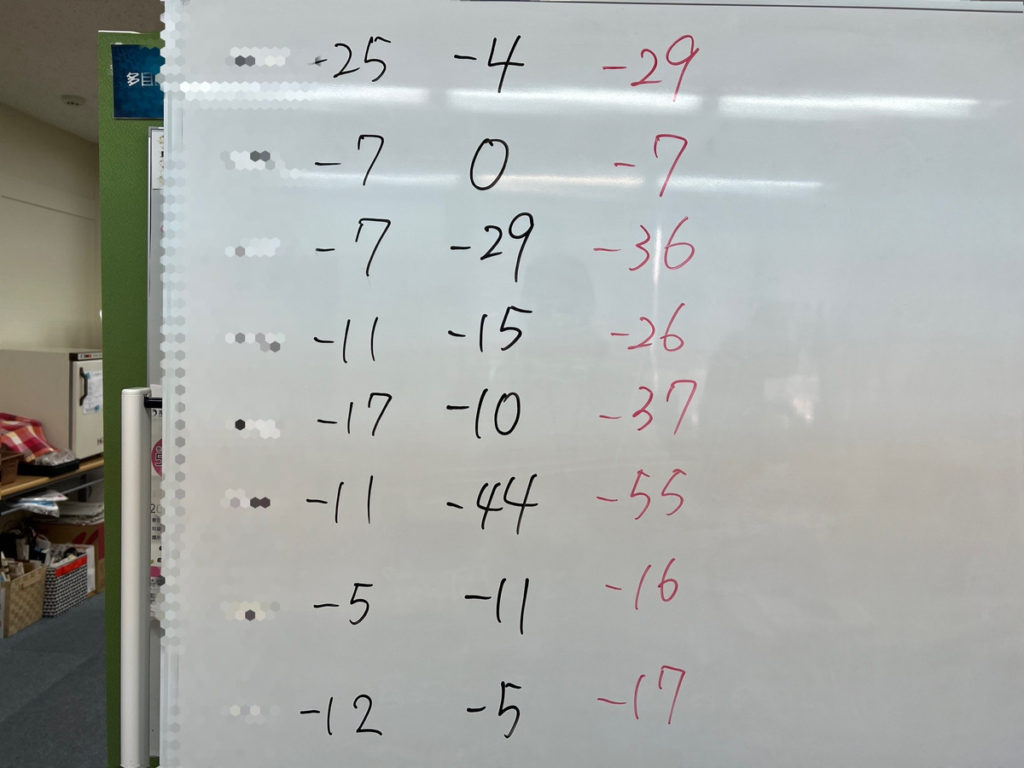 多目
-25 -4 -29
-7 0 -7
-7 -29 -36
-11 -15 -26
-17 -10 -37
-11 -44 -55
-5 -11 -16
-12 -5 -17